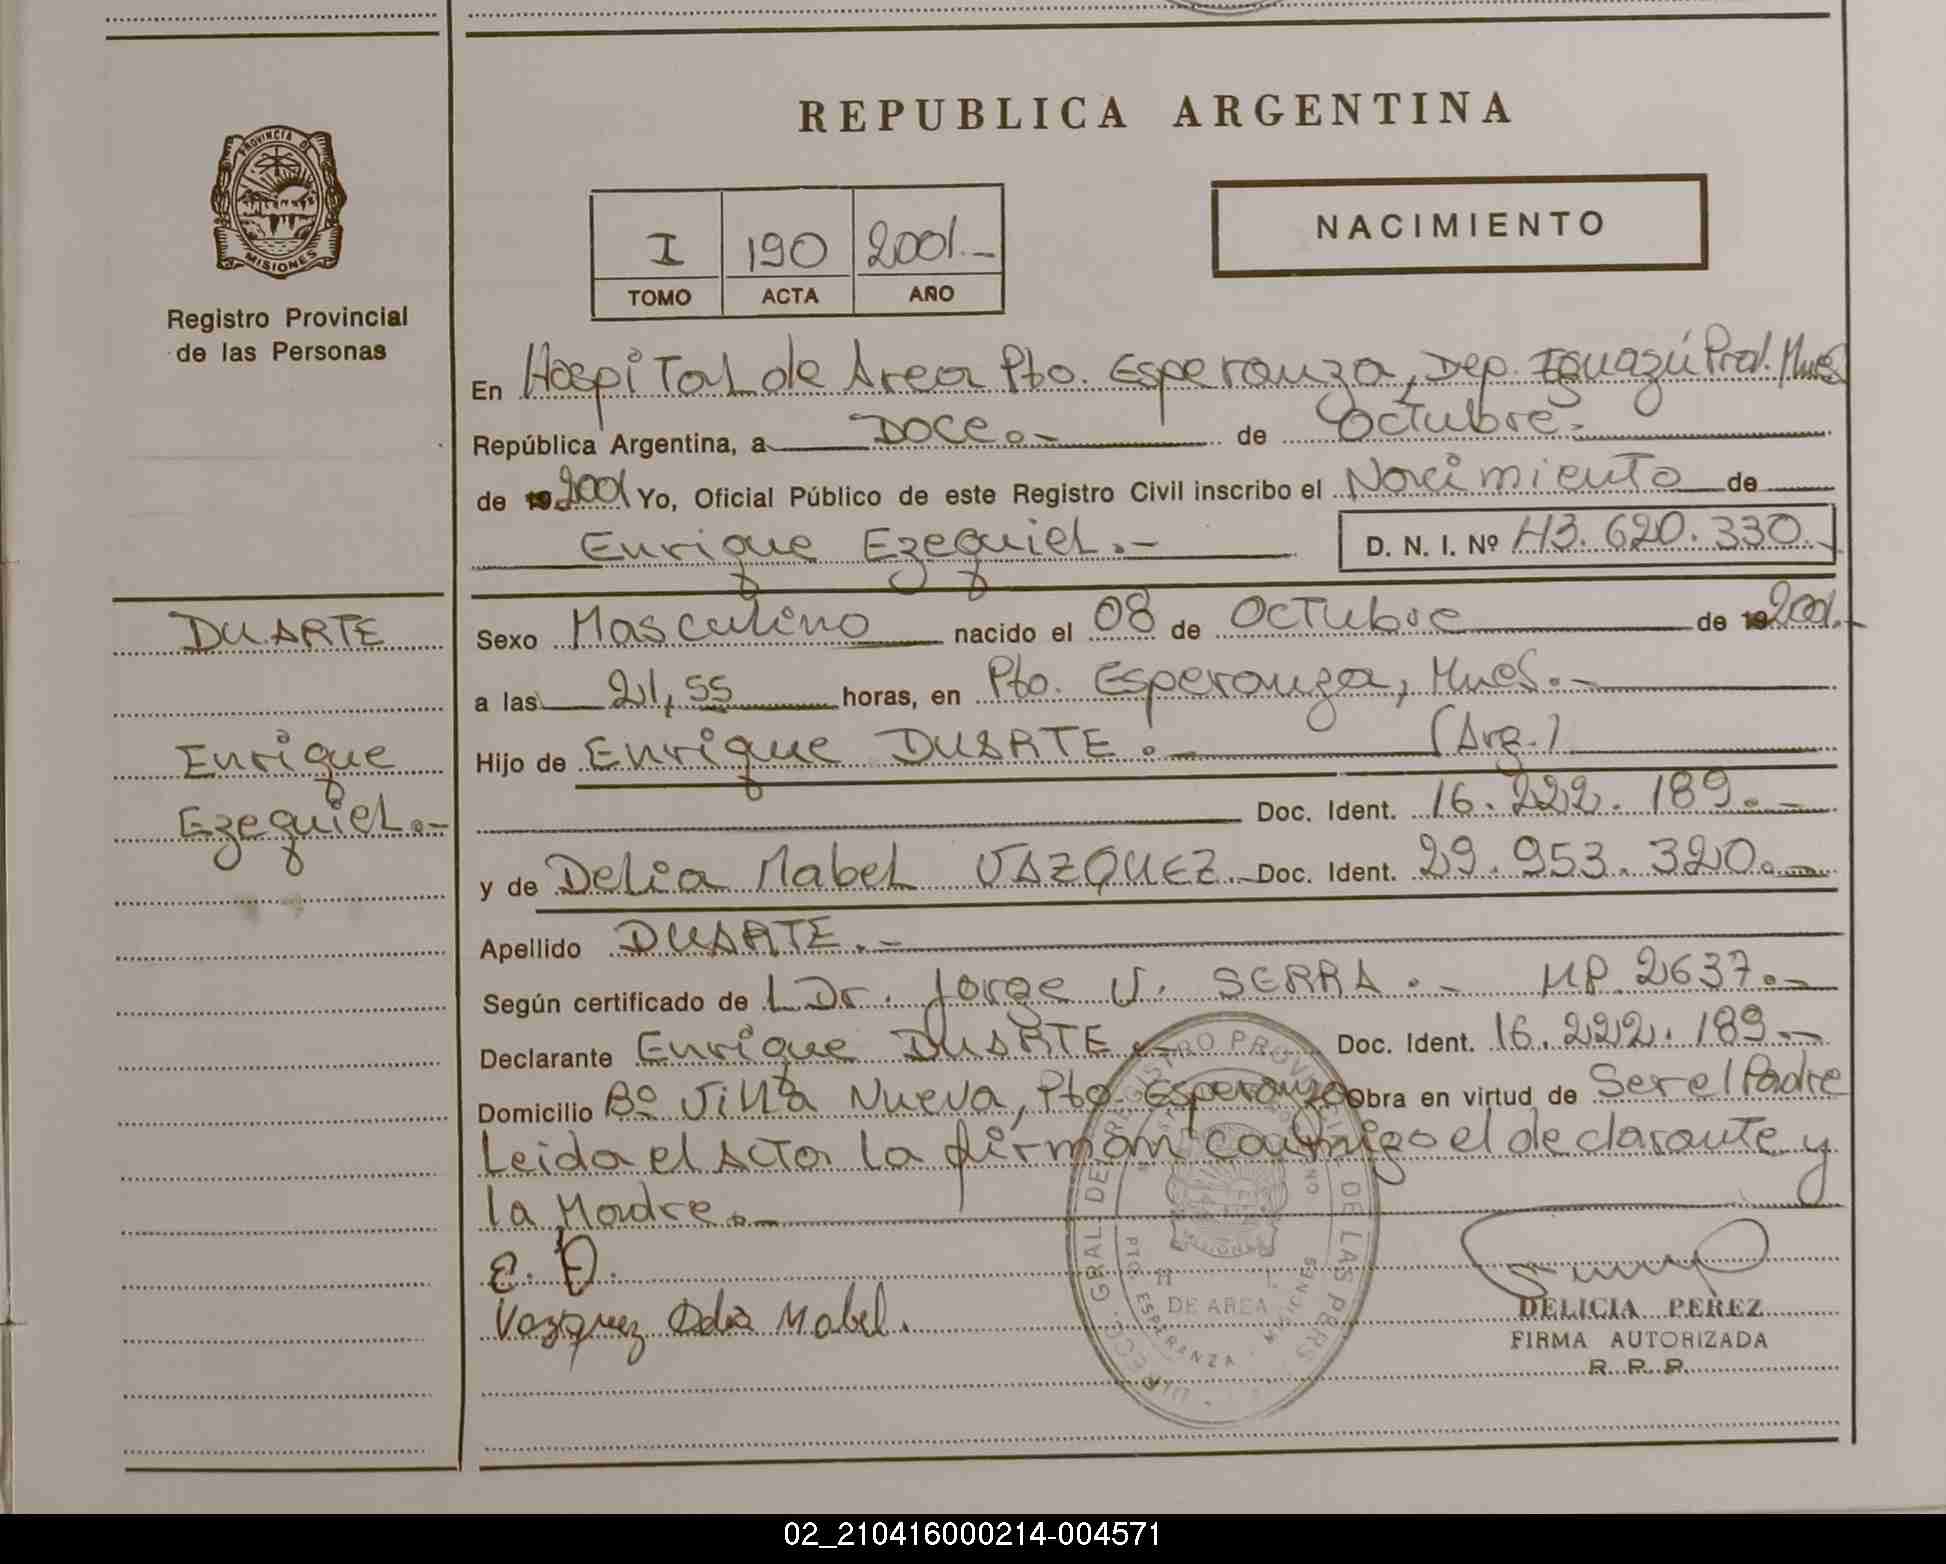 REPUBLICA ARGENTINA
NACIMIENTO
I 190 2001.-
TOMO ACTA AÑO
PROVINCIA DE
MISIONES
Registro Provincial
de las Personas
DUARTE
Enrique
Ezequiel.-
En Hospital de Area Pto. Esperanza, Dep. Iguazú Prov. Mnes
República Argentina, a Doce.- de Octubre.-
de 19 2001 Yo, Oficial Público de este Registro Civil inscribo el Nacimiento de
Enrique Ezequiel.- D. N. I. Nº 43.620.330.-
Sexo Masculino nacido el 08 de Octubre de 19 2001.-
a las 21,55 horas, en Pto. Esperanza, Mnes.-
Hijo de Enrique DUARTE.- (Arg.)
Doc. Ident. 16.222.189.-
y de Delia Mabel VAZQUEZ.- Doc. Ident. 29.953.320.-
Apellido DUARTE.-
Según certificado de L Dr. Jorge V. SERRA.- MP. 2637.-
Declarante Enrique DUARTE.- Doc. Ident. 16.222.189.-
Domicilio Bº Villa Nueva, Pto. Esperanza Obra en virtud de Ser el Padre
Leida el Acta la firman conmigo el declarante y
la Madre.-
E. D.
Vazquez Delia Mabel.
DELICIA PEREZ
FIRMA AUTORIZADA
R. P. P.
DIRECC. GRAL. DEL REGISTRO PROVINCIAL DE LAS PERS
DE AREA
PTO ESPERANZA - MISIONES
02_210416000214-004571